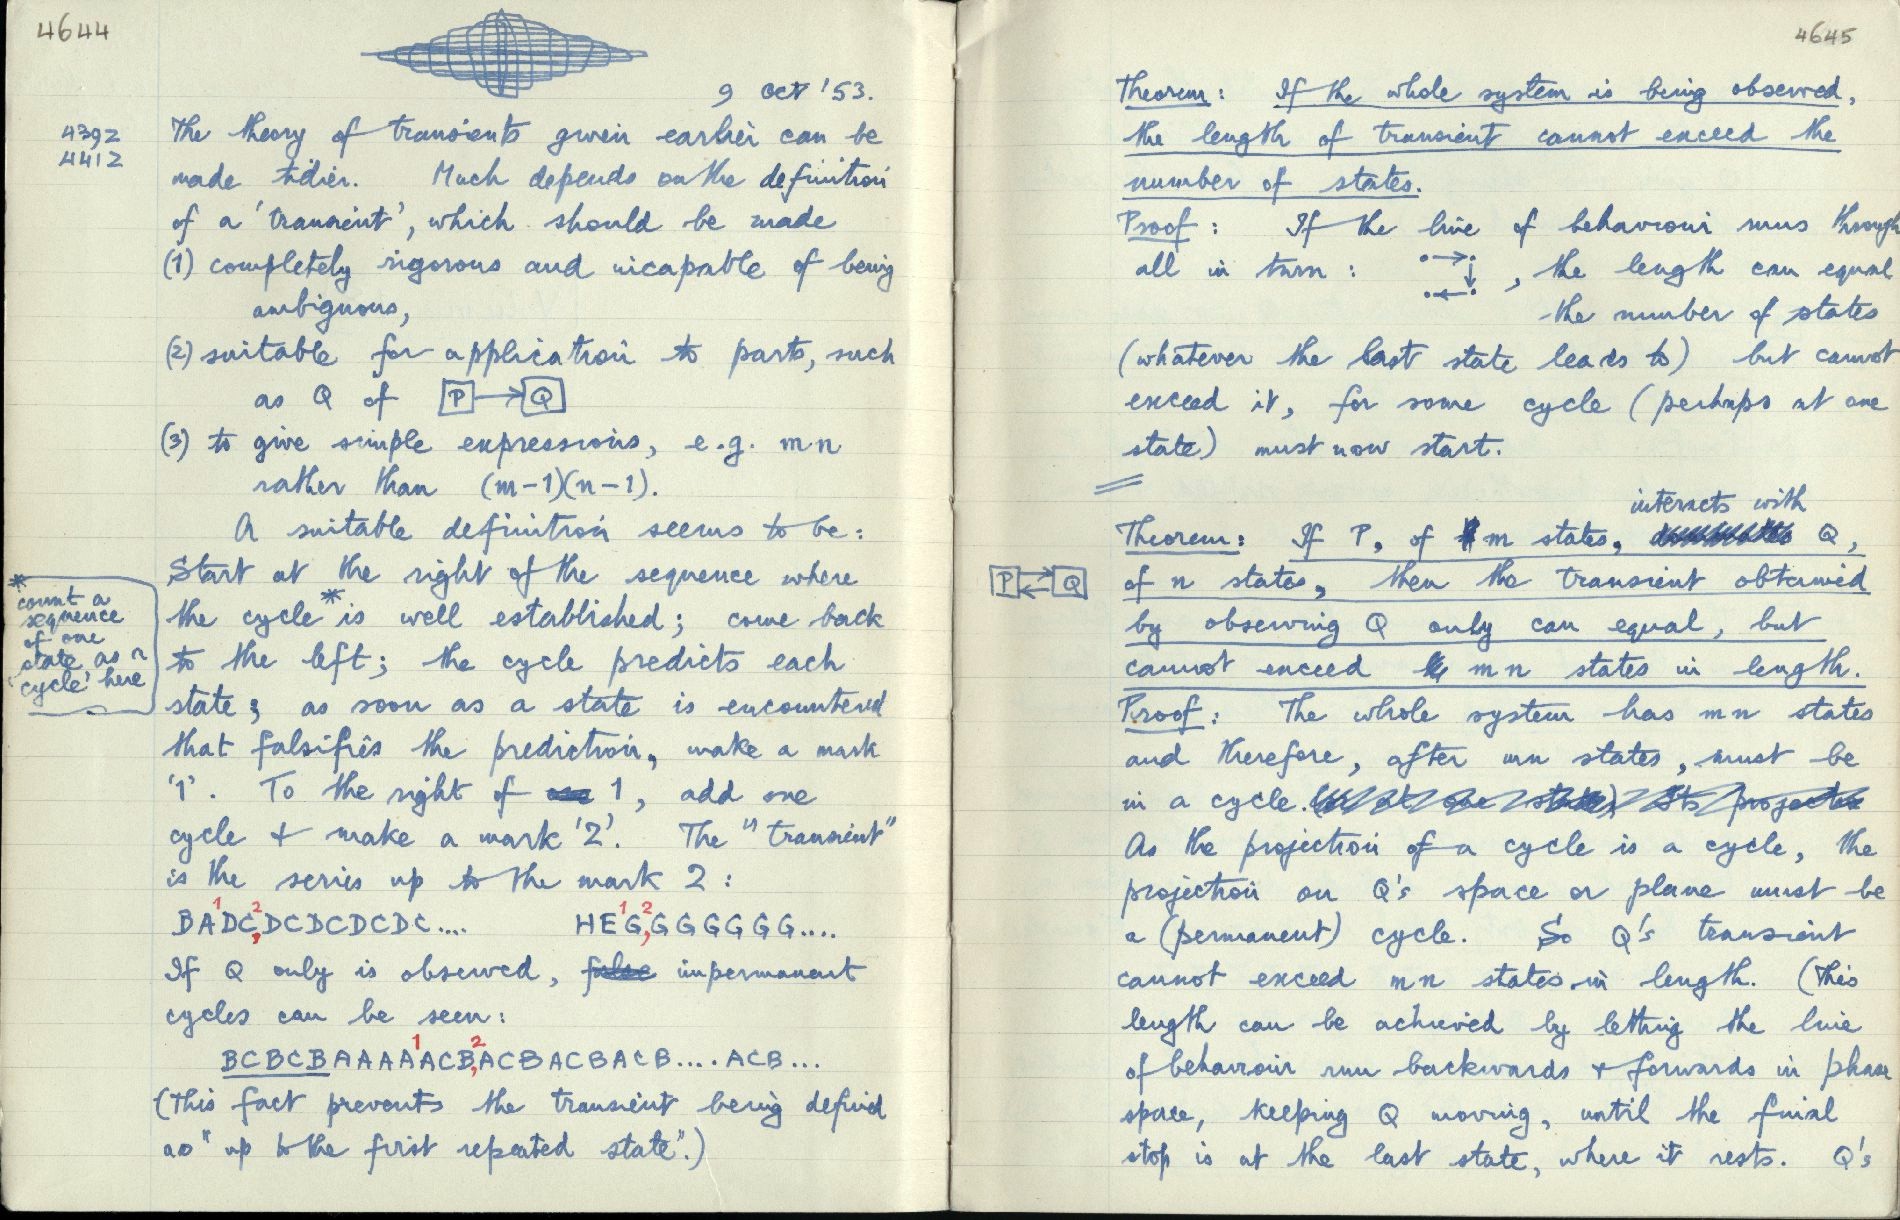 4644
9 Oct '53.
4392
4412
The theory of transients given earlier can be
made tidier. Much depends on the definition
of a 'transient', which should be made
(1) completely rigorous and incapable of being
ambiguous,
(2) suitable for application to parts, such
as Q of P → Q
(3) to give simple expressions, e.g. mn
rather than (m-1)(n-1).
A suitable definition seems to be:
Start at the right of the sequence where
the cycle* is well established; come back
to the left; the cycle predicts each
state; as soon as a state is encountered
that falsifies the prediction, make a mark
'1'. To the right of 1, add one
cycle + make a mark '2'. The "transient"
is the series up to the mark 2:
* count a
sequence
of one
state as a
'cycle' here
1 2
BADC,DCDCDCDC....
1 2
HEG,GGGGGG....
If Q only is observed, false impermanent
cycles can be seen:
1 2
BCBCBAAAAAACB,ACBACBACB....ACB...
(This fact prevents the transient being defined
as "up to the first repeated state".)
4645
Theorem: If the whole system is being observed,
the length of transient cannot exceed the
number of states.
Proof: If the line of behaviour runs through
all in turn: , the length can equal
the number of states
(whatever the last state leads to) but cannot
exceed it, for some cycle (perhaps at one
state) must now start.
interacts with
Theorem: If P, of m states, Q,
P ⇄ Q
of n states, then the transient obtained
by observing Q only can equal, but
cannot exceed mn states in length.
Proof: The whole system has mn states
and therefore, after mn states, must be
in a cycle. (or at one state) Its projection
As the projection of a cycle is a cycle, the
projection on Q's space or plane must be
a (permanent) cycle. So Q's transient
cannot exceed mn states in length. (This
length can be achieved by letting the line
of behaviour run backwards + forwards in phase
space, keeping Q moving, until the final
stop is at the last state, where it rests. Q's